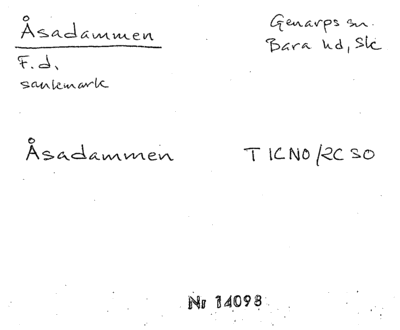 Åsadammen
Genarps sn.
Bara hd, Sk
F.d.
sankmark
Åsadammen T1CNO/2CSO
Nr 14098